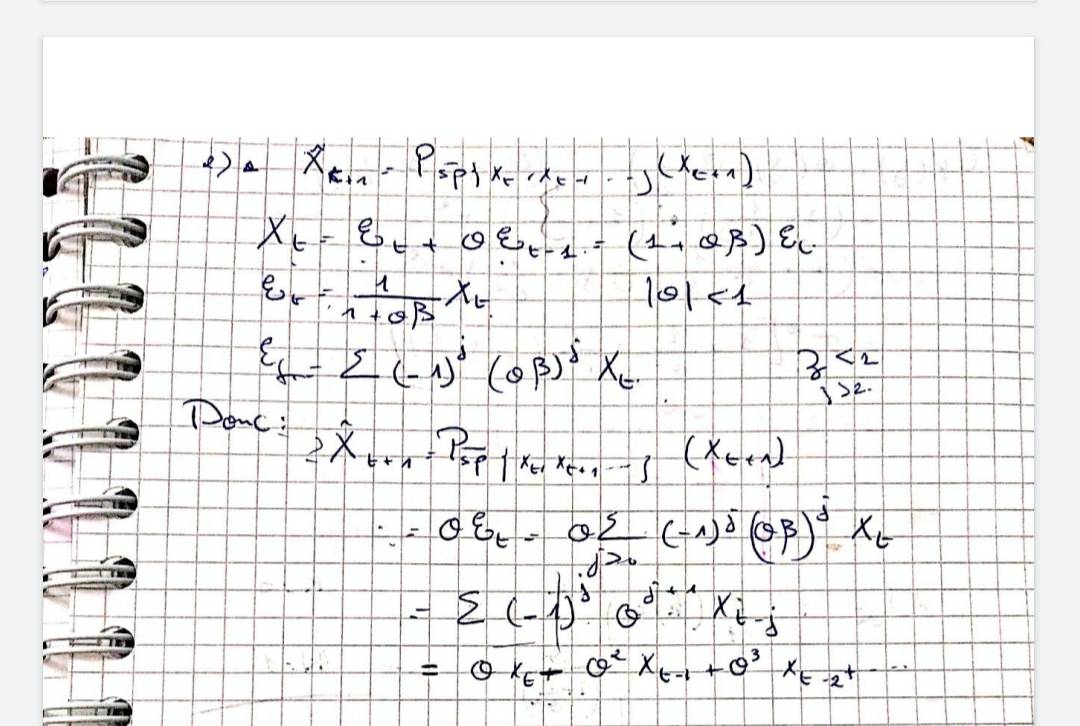 2) a X̂t+1 = P s̄p{Xt, Xt-1 ...} (Xt+1)
Xt = Ɛt + θ Ɛt-1 = (1 + θβ) Ɛt
Ɛt = 1/(1 + θβ) Xt |θ| < 1
Ɛt = Σ (-1)^j (θβ)^j Xt
Donc :
X̂t+1 = P s̄p {Xt, Xt+1 ...} (Xt+1)
= θ Ɛt = θ Σ j≥0 (-1)^j (θβ)^j Xt
= Σ (-1)^j θ^j+1 Xt-j
= θ Xt + θ² Xt-1 + θ³ Xt-2 + ...